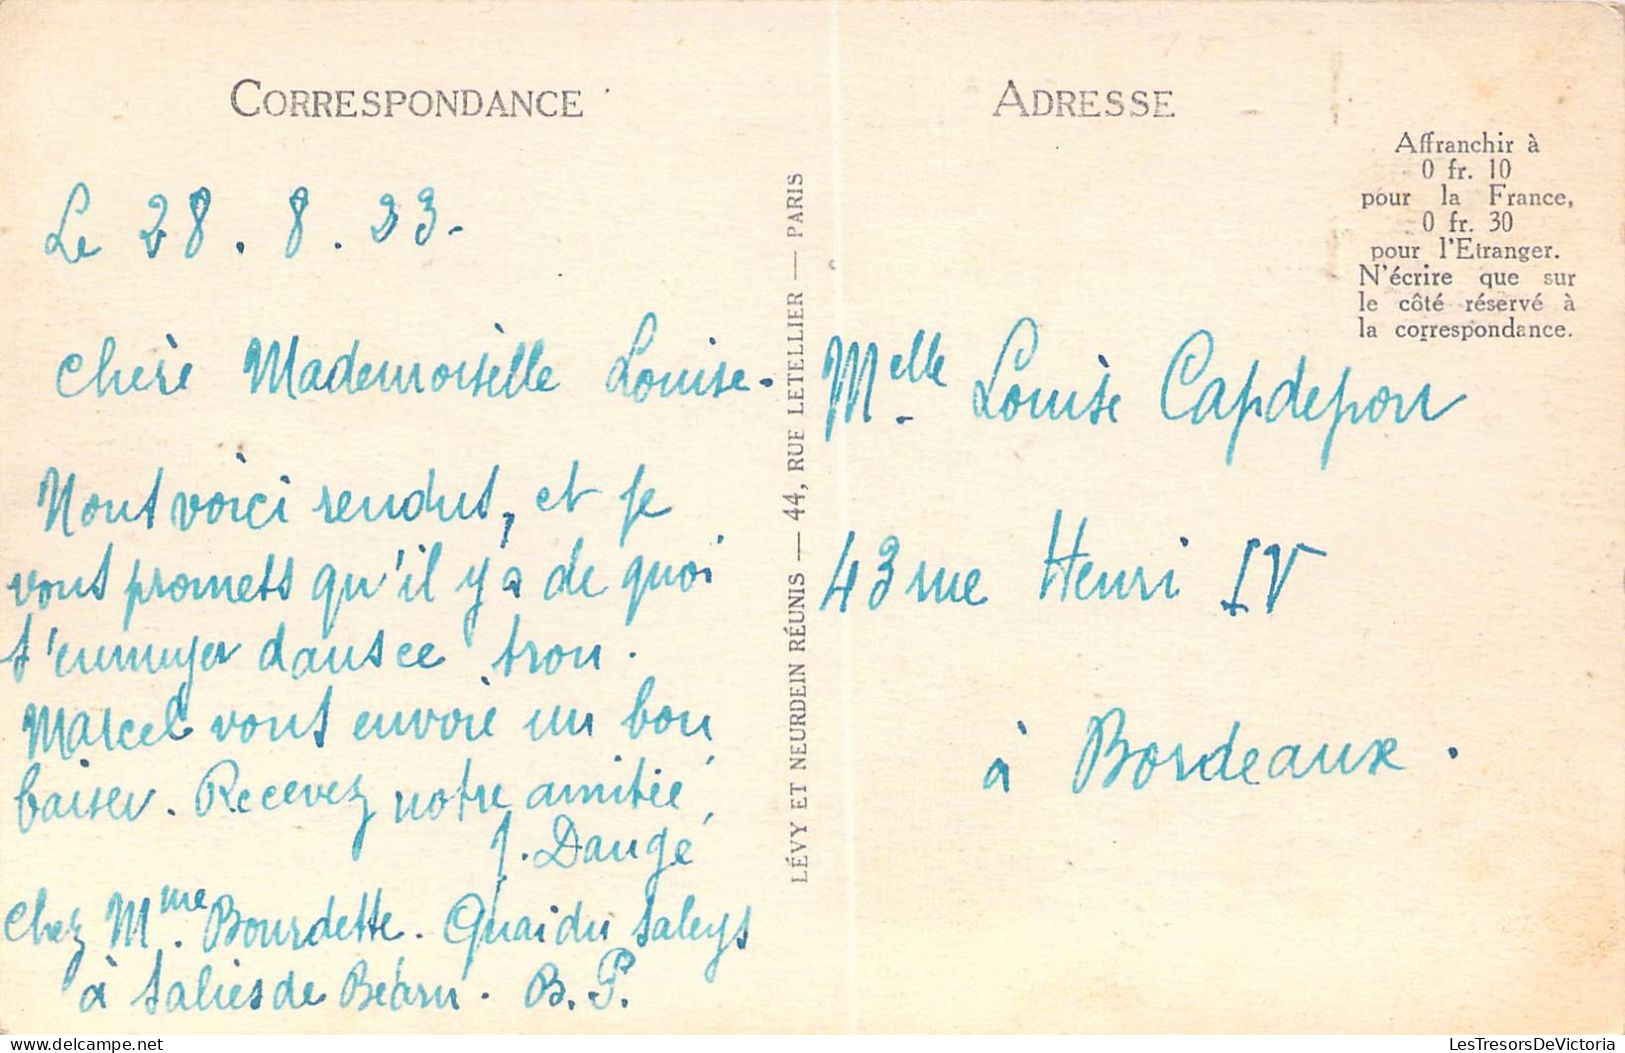 CORRESPONDANCE
Le 28.8.33.
Chère Mademoiselle Louise.
Nous voici rendus, et je
vous promets qu'il y a de quoi
s'ennuyer dans ce trou.
Marcel vous envoie un bon
baiser. Recevez notre amitié,
J. Daugé
Chez Mme. Bourdette. Quai du Saleys
à Salies de Béarn. B.P.
LÉVY ET NEURDEIN RÉUNIS — 44, RUE LETELLIER — PARIS
ADRESSE
Affranchir à
0 fr. 10
pour la France,
0 fr. 30
pour l'Etranger.
N'écrire que sur
le côté réservé à
la correspondance.
Melle Louise Capdepon
43 rue Henri IV
à Bordeaux.
delcampe.net
LesTresorsDeVictoria